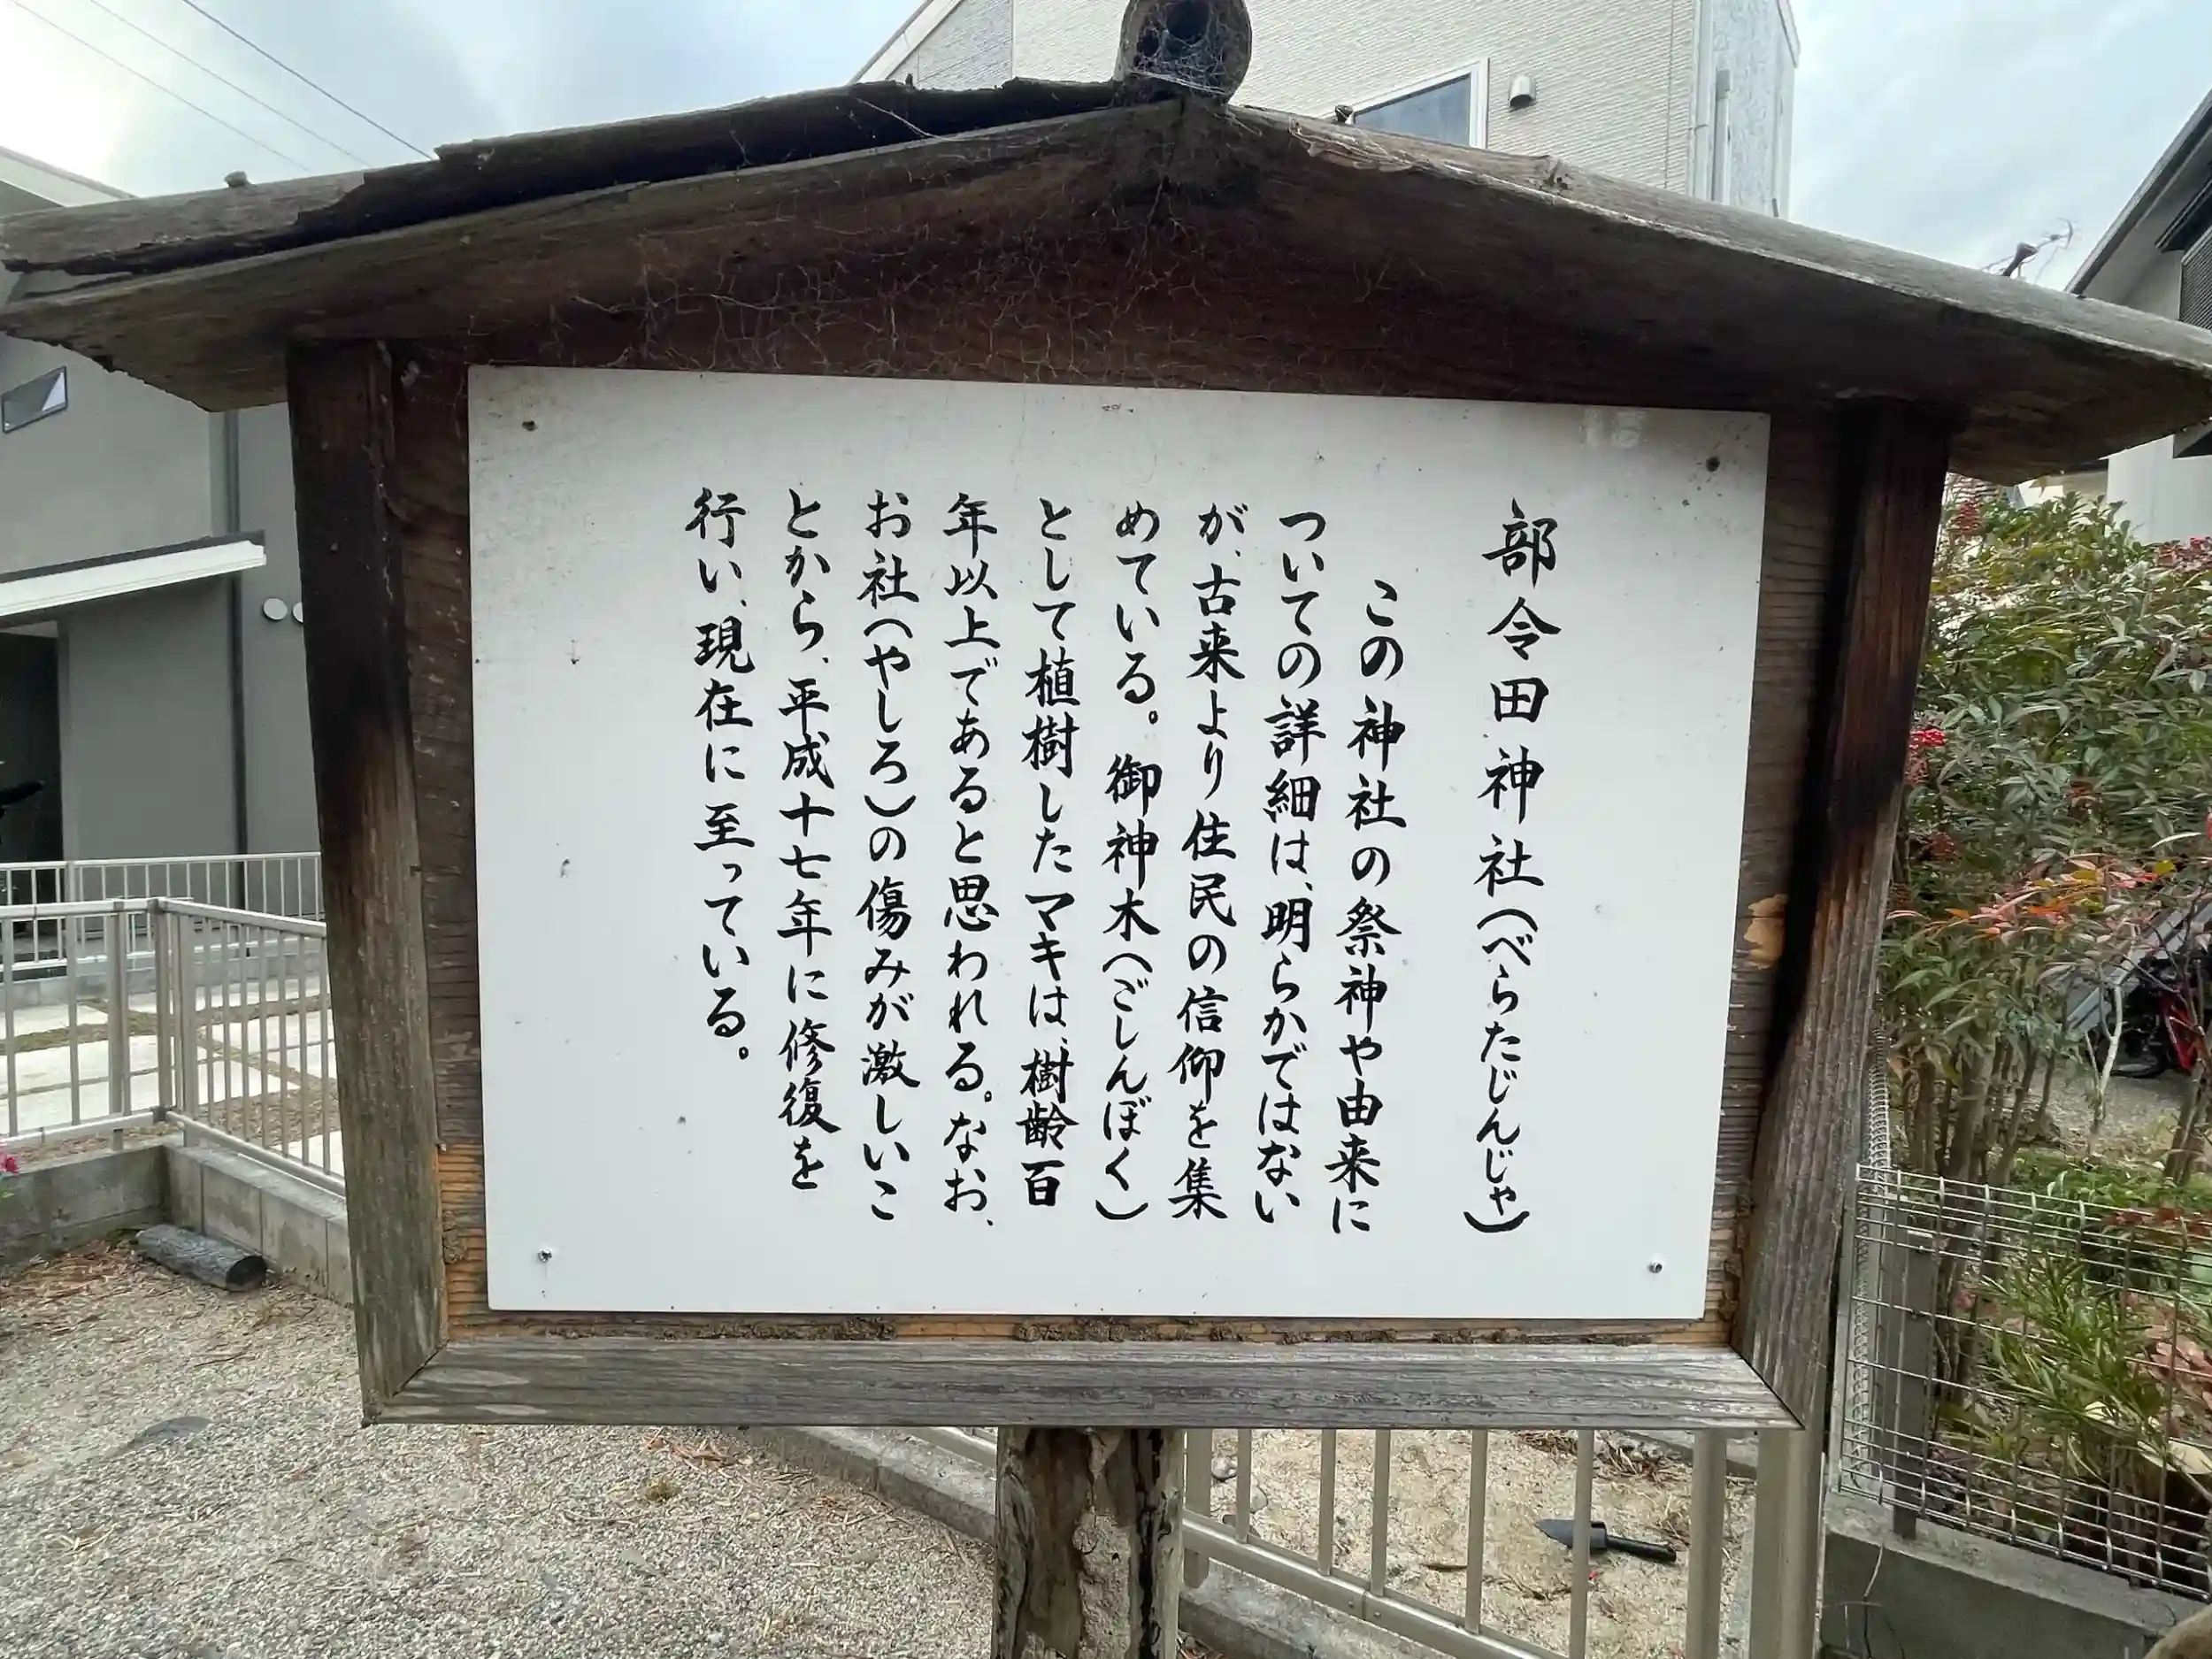 部令田神社(べらたじんじゃ)
この神社の祭神や由来に
ついての詳細は、明らかではない
が、古来より住民の信仰を集
めている。御神木(ごしんぼく)
として植樹したマキは、樹齢百
年以上であると思われる。なお、
お社(やしろ)の傷みが激しいこ
とから、平成十七年に修復を
行い、現在に至っている。